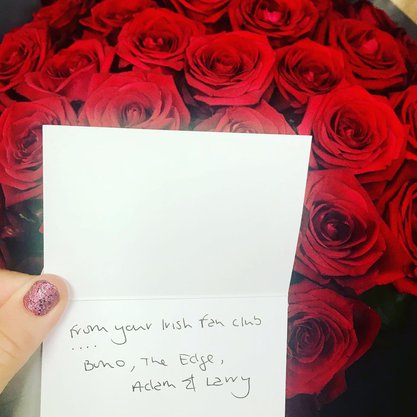 From your Irish fan club
....
Bono, The Edge,
Adam & Larry